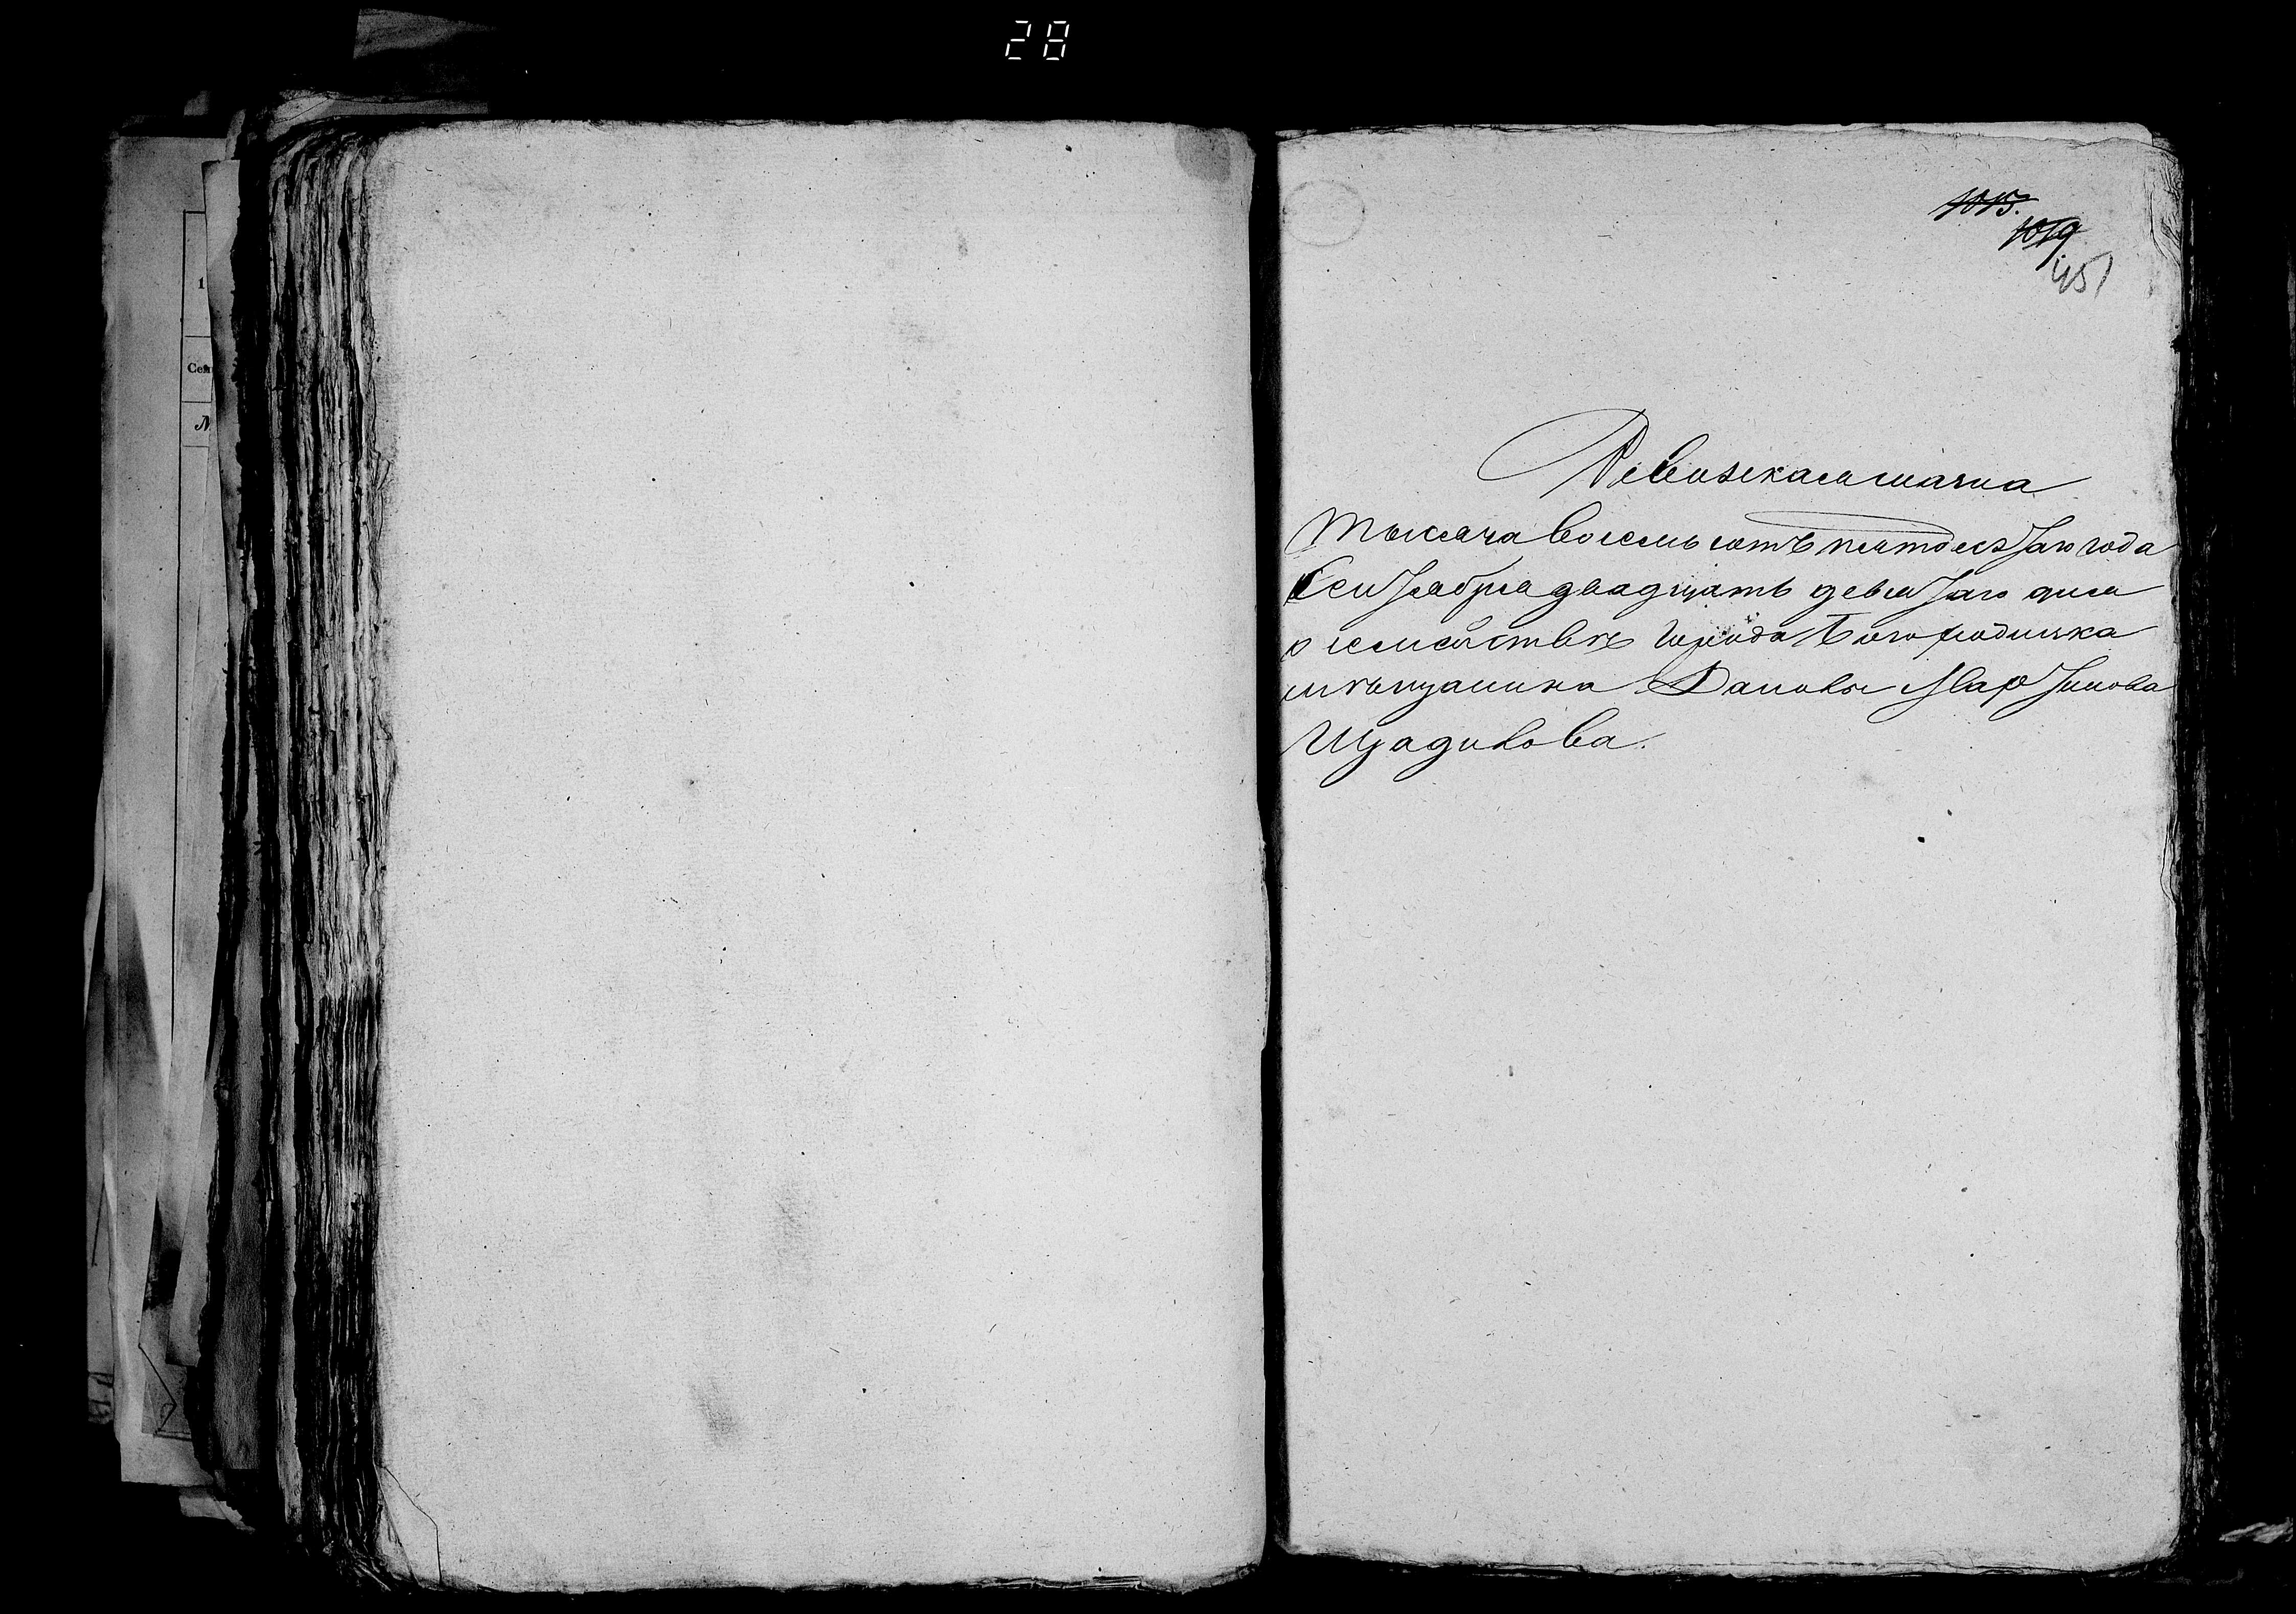 28
1015.
1019
451
Ревизскаясказка
Тысяча восемь сотъ пятдесятаго года
Сентября двадцать девятаго дня
о семействѣ города Богородицка
мѣщанина Мартинова
Щадилова.
1
Сен